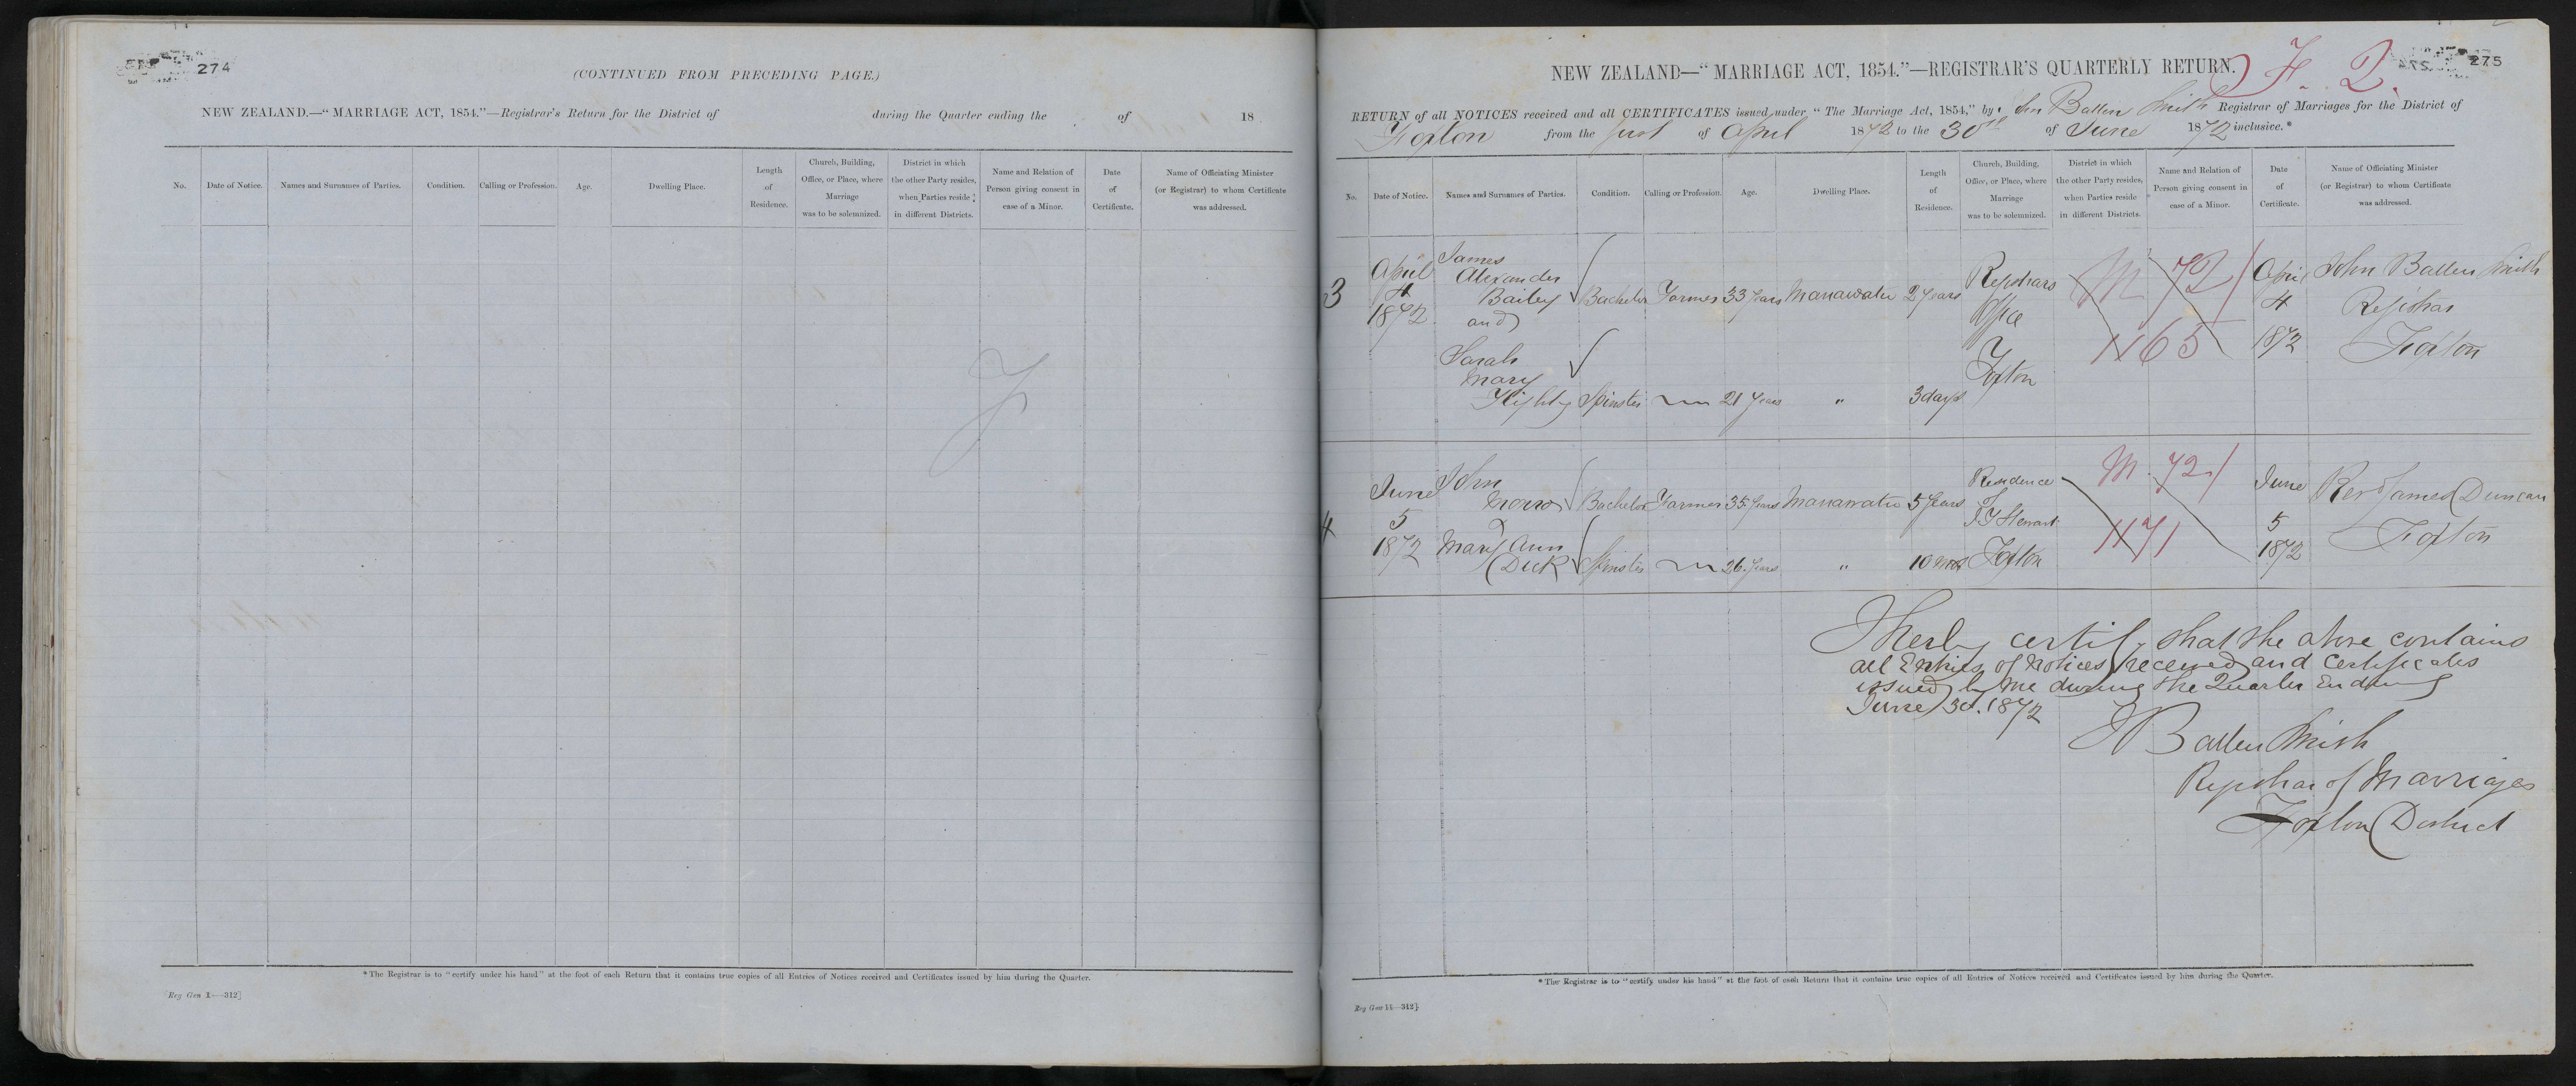 274
(CONTINUED FROM PRECEDING PAGE.)
NEW ZEALAND.—"MARRIAGE ACT, 1854."—Registrar's Return for the District of during the Quarter ending the of 18
No.
Date of Notice.
Names and Surnames of Parties.
Condition.
Calling or Profession.
Age.
Dwelling Place.
Length
of
Residence.
Church, Building,
Office, or Place, where
Marriage
was to be solemnized.
District in which
the other Party resides,
when Parties reside
in different Districts.
Name and Relation of
Person giving consent in
case of a Minor.
Date
of
Certificate.
Name of Officiating Minister
(or Registrar) to whom Certificate
was addressed.
*The Registrar is to "certify under his hand" at the foot of each Return that it contains true copies of all Entries of Notices received and Certificates issued by him during the Quarter.
[Reg Gen 1—312]
275
NEW ZEALAND—"MARRIAGE ACT, 1854."—REGISTRAR'S QUARTERLY RETURN.
RETURN of all NOTICES received and all CERTIFICATES issued under "The Marriage Act, 1854," by John Ballen Smith Registrar of Marriages for the District of
Foxton from the first of April 1872 to the 30th of June 1872 inclusive.*
No.
Date of Notice.
Names and Surnames of Parties.
Condition.
Calling or Profession.
Age.
Dwelling Place.
Length
of
Residence.
Church, Building,
Office, or Place, where
Marriage
was to be solemnized.
District in which
the other Party resides,
when Parties reside
in different Districts.
Name and Relation of
Person giving consent in
case of a Minor.
Date
of
Certificate.
Name of Officiating Minister
(or Registrar) to whom Certificate
was addressed.
3
April
4
1872
James
Alexander
Bailey
and
Bachelor
Farmer
33 Years
Manawatu
2 Years
Registrars
Office
Foxton
M 72/
1165
April
4
1872
John Ballen Smith
Registrar
Foxton
Sarah
Mary
Spinster
21 Years
"
3 days
4
June
5
1872
John
Bachelor
Farmer
35 Years
Manawatu
5 Years
Residence
of
Stewart
Foxton
M. 72/
1171
June
5
1872
Rev James Duncan
Foxton
Mary Ann
Dick
Spinster
26 Years
"
10 mos
I hereby certify that the above contains
all Entries of Notices received and Certificates
issued by me during the Quarter Ending
June 30. 1872
J Ballen Smith
Registrar of Marriages
Foxton District
*The Registrar is to "certify under his hand" at the foot of each Return that it contains true copies of all Entries of Notices received and Certificates issued by him during the Quarter.
Reg Gen 11—312]